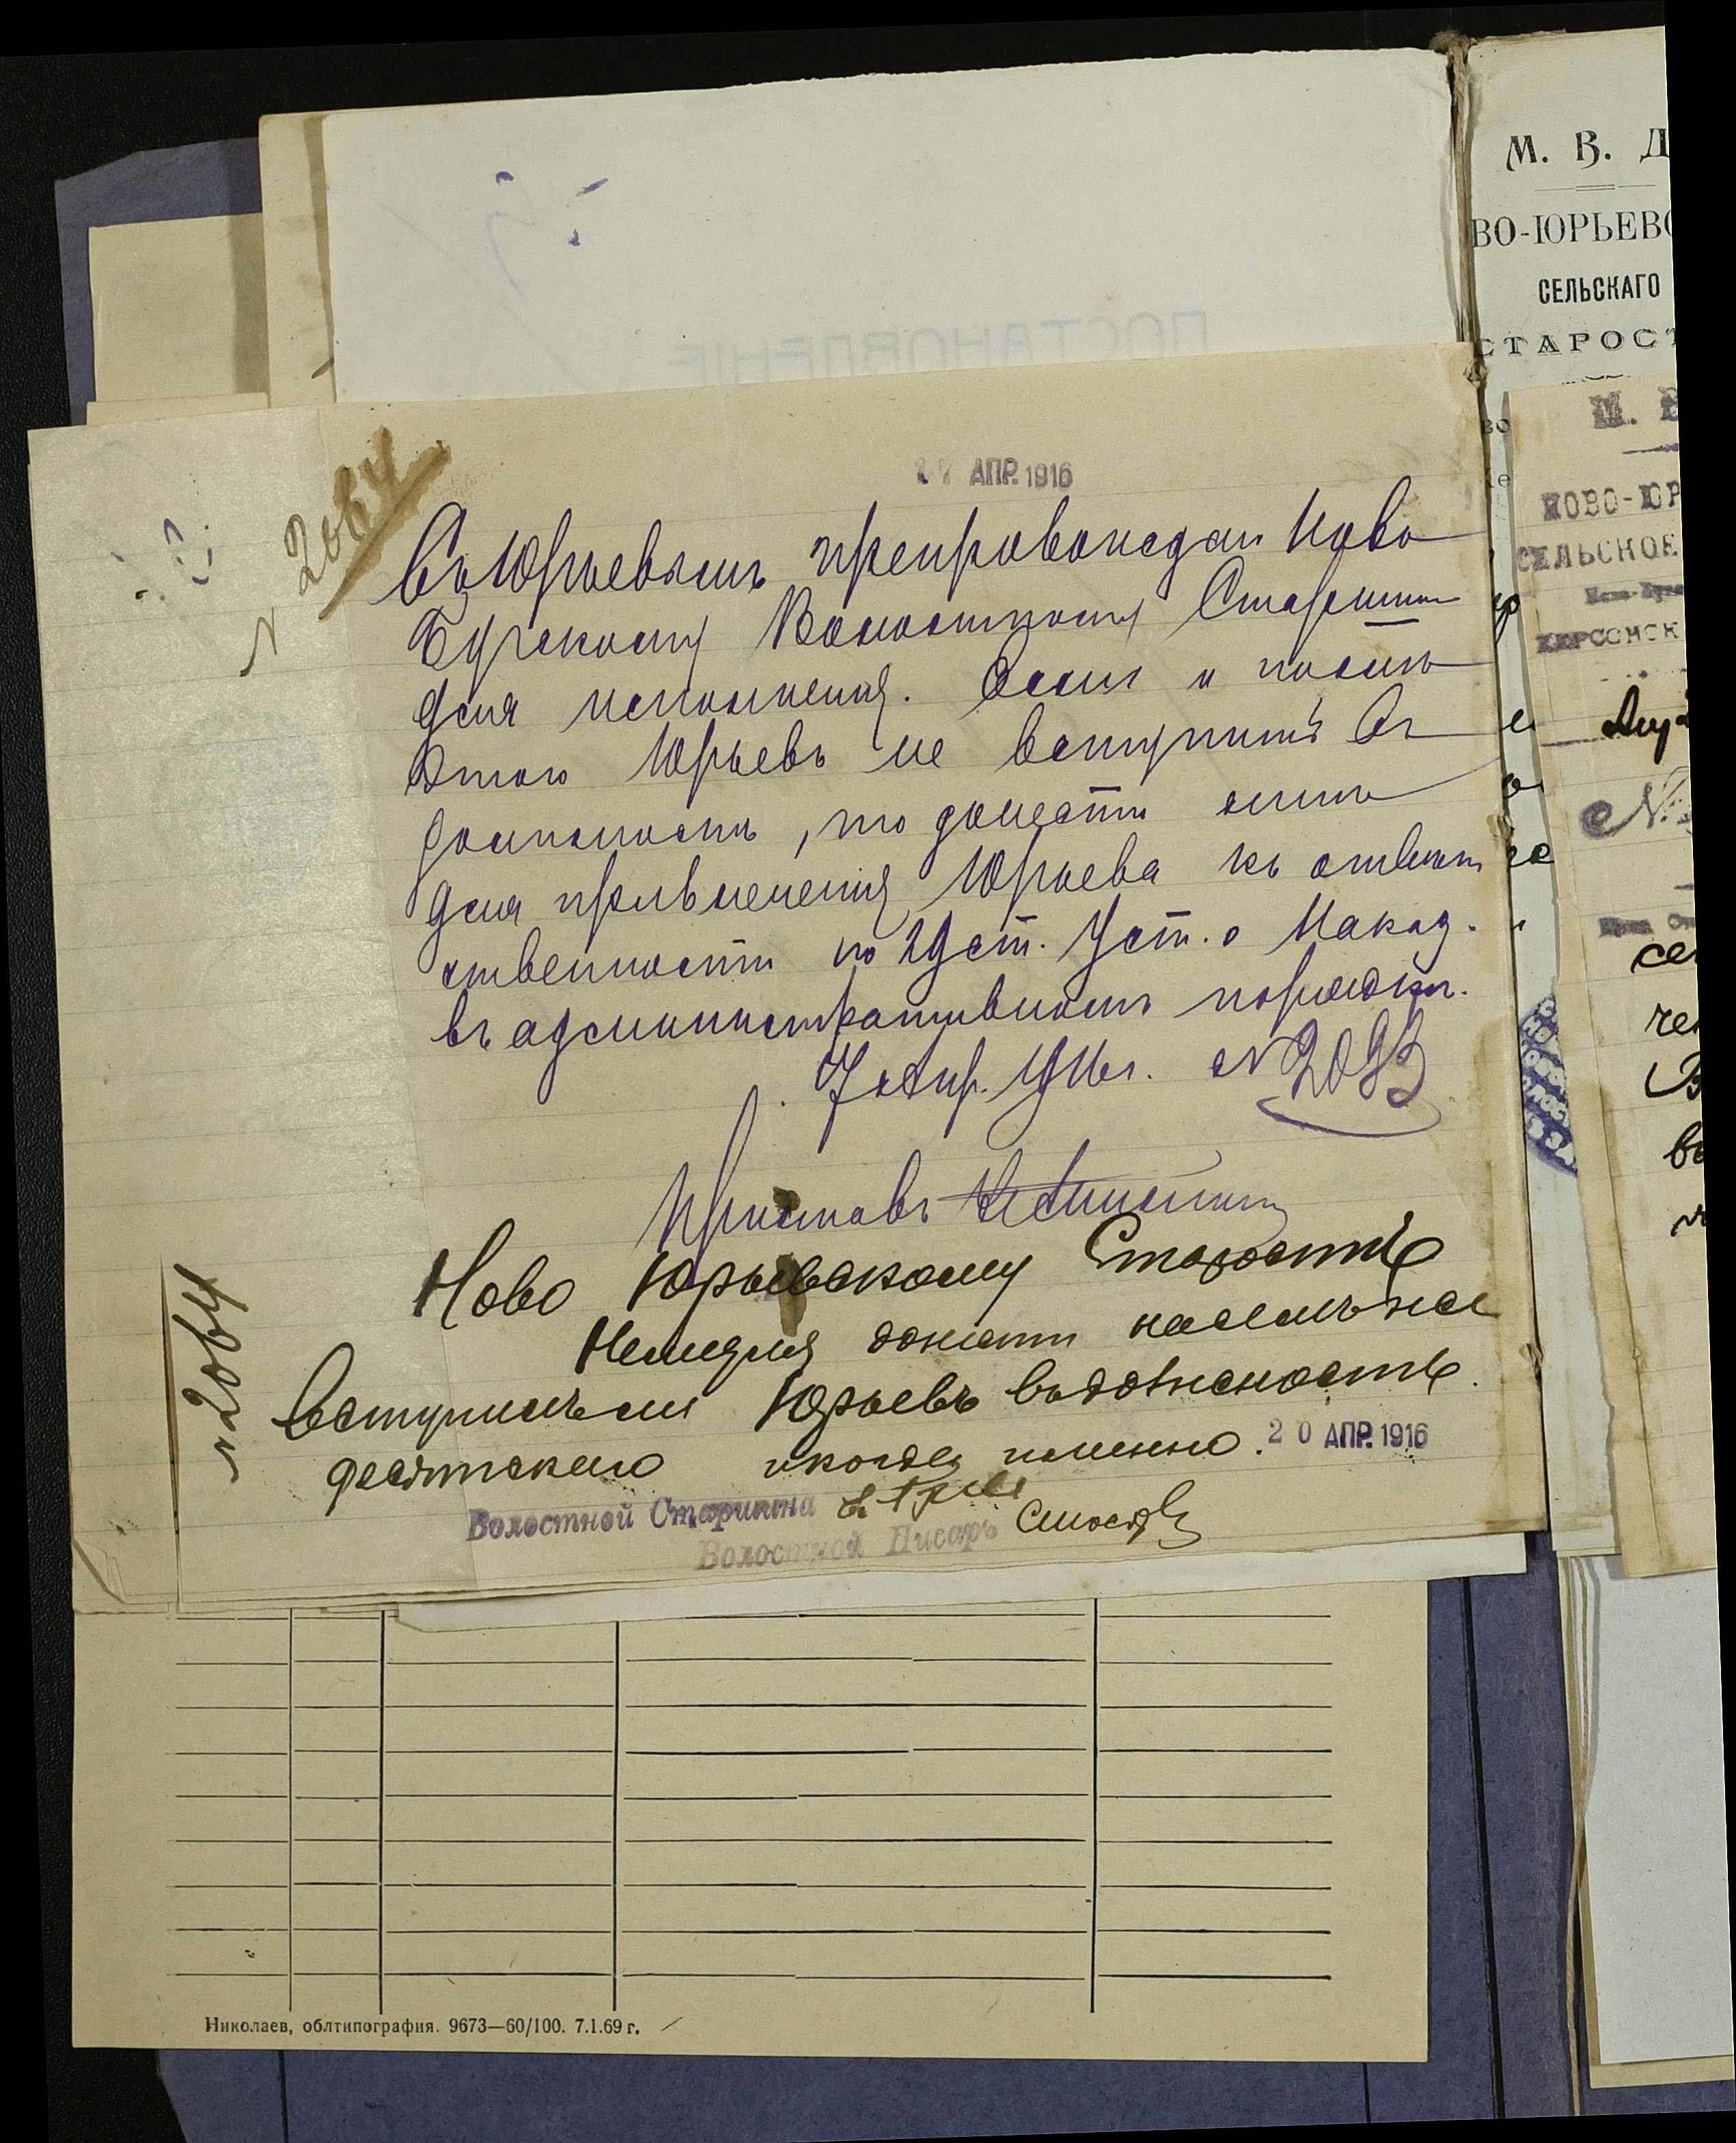 М. В. Д
ВО-ЮРЬЕВС
СЕЛЬСКАГО
СТАРОСТ
ПОСТАНОВЛЕНІЕ
М. В
НОВО-ЮР
СЕЛЬСКОЕ
ХЕРСОНСК
№ 2064
17 АПР. 1916
Съ Юрьевымъ препровождаю Ново
Бугскому Волостному Старшин
для исполненія. Если и послѣ
этого Юрьевъ не вступитъ въ
должность, то донести мнѣ
для привлеченія Юрьева къ ответ
ственности по 29 ст. Уст. о Наказ.
въ административномъ порядкѣ.
7 Апр. 1916 г. № 2093
Приставъ
Ново Юрьевскому Старостѣ
Немедля донести насамъ не
вступилъ ли Юрьевъ въ должность
десятскаго и когда именно.
20 АПР. 1916
Волостной Старшина
Волостной Писарь
№ 2064
Николаев, облтипография. 9673—60/100. 7.1.69 г.